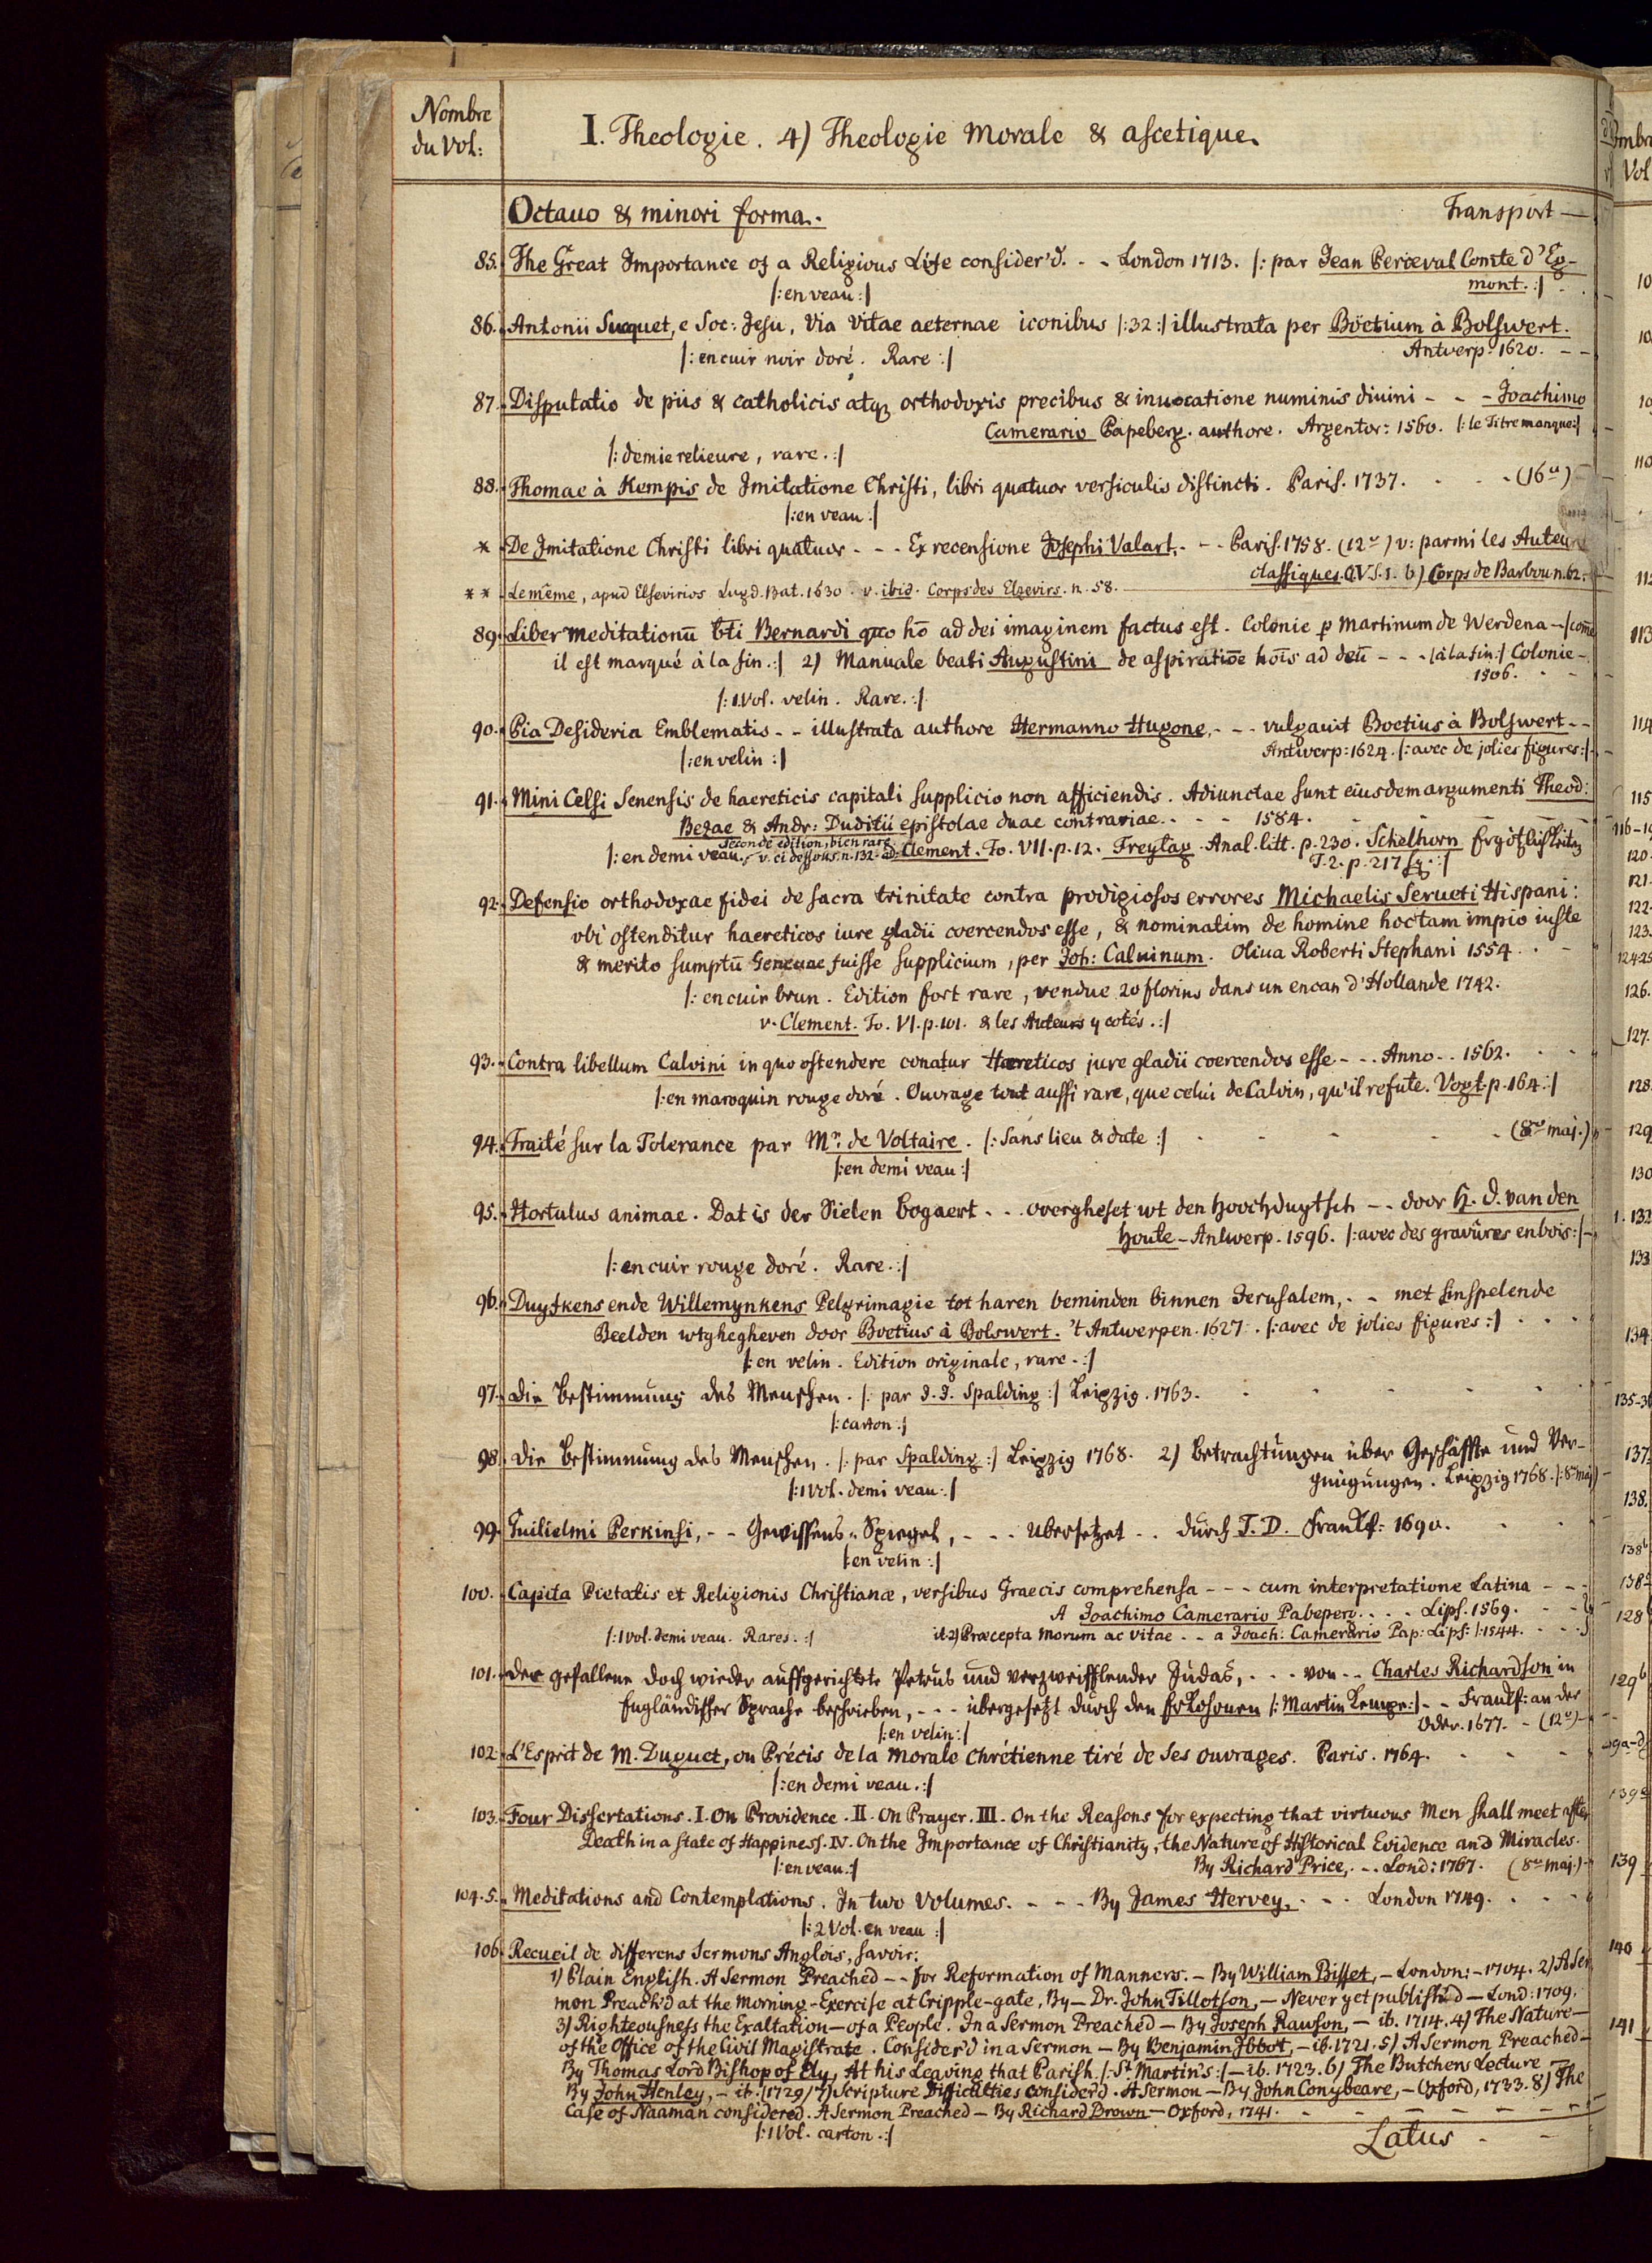 Nombre
du Vol:
I. Theologie. 4) Theologie Morale & ascetique.
Octavo & minori forma.
Transport —
85. The Great Importance of a Religious Life consider'd. - - London 1713. |: par Jean Perceval Comte d'Eg-
mont. :|
|: en veau :|
86. Antonii Sucquet, e Soc: Jesu, Via Vitae aeternae iconibus |: 32 :| illustrata per Boëtium à Bolswert.
|: en cuir noir doré. Rare :|
Antverp: 1620. - -
87. Disputatio de piis & catholicis atq3 orthodoxis precibus & inuocatione numinis diuini - - - Joachimo
Camerario Papeberg. authore. Argentor: 1560. |: le Titre manque :|
|: demie relieure, rare. :|
88. Thomae à Kempis de Imitatione Christi, libri quatuor versiculis distincti. Paris. 1737. - (16°)
|: en veau :|
* De Imitatione Christi libri quatuor - - - Ex recensione Josephi Valart. - - Paris. 1758. (12°) v: parmi les Auteurs
classiques. 
b) Corps de Barbou n. 62.
** Le même, apud Elsevirios Lugd. Bat. 1630. v. ibid. Corps des Elzevirs. n. 58.
89. Liber meditationū bti Bernardi quo hō ad dei imaginem factus est. Colonie p Martinum de Werdena - |: come
il est marqué à la fin. :| 2) Manuale beati Augustini de aspiratiōe hoīs ad deū - - - |: à la fin :| Colonie -
1506.
|: 1 Vol. velin. Rare. :|
90. Pia Desideria Emblematis - - illustrata authore Hermanno Hugone, - - - vulgauit Boetius à Bolswert - -
|: en velin :|
Antwerp: 1624. |: avec de jolies figures :|
91. Mini Celsi Senensis de haereticis capitali supplicio non afficiendis. Adiunctae sunt eiusdem argumenti Theod:
Bezae & Andr: Duditii epistolae duae contrariae. - - - 1584.
seconde edition, bien rare
|: en demi veau. v. ci dessous. n. 132. Clement. To. VII. p. 12. Freytag. Anal. litt. p. 230. Schelhorn Ergötzlichkeiten
T. 2. p. 217 sq. :|
92. Defensio orthodoxae fidei de sacra trinitate contra prodigiosos errores Michaelis Serueti Hispani:
vbi ostenditur haereticos iure gladii coercendos esse, & nominatim de homine hoc tam impio iuste
& merito sumptū Geneuae fuisse supplicium, per Joh: Caluinum. Oliua Roberti Stephani 1554.
|: en cuir brun. Edition fort rare, vendue 20 florins dans un encan d'Hollande 1742.
v. Clement. To. VI. p. 101. & les Auteurs y cotés. :|
93. Contra libellum Calvini in quo ostendere conatur Haereticos jure gladii coercendos esse - - - Anno - - 1562.
|: en maroquin rouge doré. Ouvrage tout aussi rare, que celui de Calvin, qu'il refute. Vogt. p. 164. :|
94. Traité sur la Tolerance par Mr. de Voltaire. |: Sans lieu & date :| (8vo maj.)
|: en demi veau :|
95. Hortulus animae. Dat is der Sielen bogaert - - - overgheset wt den Hoochduytsch - - door H. J. van den
Houte - Antwerp. 1596. |: avec des gravûres en bois :|
|: en cuir rouge doré. Rare. :|
96. Duyfkens ende Willemynkens Pelgrimagie tot haren beminden binnen Jerusalem, - - met sinspelende
Beelden wtghegheven door Boetius à Bolswert. 't Antwerpen. 1627. |: avec de jolies figures :|
|: en velin. Edition originale, rare. :|
97. Die Bestimmung des Menschen. |: par J. J. Spalding :| Leipzig. 1763.
|: carton :|
98. Die Bestimmung des Menschen. |: par Spalding :| Leipzig 1768. 2) Betrachtungen über Geschäffte und Ver-
gnügungen. Leipzig 1768. |: 8° maj)
|: 1 Vol. demi veau :|
99. Guilielmi Perkinsi, - - Gewissens-Spiegel, - - - übersetzet - - durch T. D. Franckf: 1690.
|: en velin :|
100. Capita Pietatis et Religionis Christianæ, versibus Graecis comprehensa - - - cum interpretatione Latina - - -
A Joachimo Camerario Pabeperg. - - - Lips. 1569.
|: 1 Vol. demi veau. Rares. :|
it. 2) Præcepta Morum ac vitae - - a Joach: Camerario Pap: Lips: 1544.
101. Der gefallene doch wieder auffgerichtete Petrus und verzweifflender Judas, - - - von - - Charles Richardson in
Engländischer Sprache beschrieben, - - - übergesetzt durch den Erkohrnen |: Martin Kempe :| - - Franckf: an der
Oder. 1677. - (12°)
|: en velin :|
102. L'Esprit de M. Duguet, ou Précis de la Morale Chrétienne tiré de ses ouvrages. Paris. 1764.
|: en demi veau. :|
103. Four Dissertations. I. On Providence. II. On Prayer. III. On the Reasons for expecting that virtuous Men shall meet after
Death in a State of Happiness. IV. On the Importance of Christianity, the Nature of Historical Evidence and Miracles.
|: en veau :|
By Richard Price, - - Lond: 1767. (8vo maj.)
104-5. Meditations and Contemplations. In two Volumes. - - - By James Hervey, - - - London 1749.
|: 2 Vol. en veau :|
106. Recueil de differens Sermons Anglois, savoir:
1) Plain English. A Sermon Preached - - for Reformation of Manners. - By William Bisset, - London: - 1704. 2) A Ser
mon Preach'd at the Morning-Exercise at Cripple-gate, By - Dr. John Tillotson, - Never yet publish'd - Lond: 1709.
3) Righteousness the Exaltation - of a People. In a Sermon Preached - By Joseph Rawson, - ib. 1714. 4) The Nature -
of the Office of the Civil Magistrate. Consider'd in a Sermon - By Benjamin Ibbot, - ib. 1721. 5) A Sermon Preached -
By Thomas Lord Bishop of Ely, At his Leaving that Parish |: St. Martin's :| - ib. 1723. 6) The Butchers Lecture -
By John Henley, - ib. (1729) 7) Scripture Difficulties consider'd. A Sermon - By John Conybeare, - Oxford, 1733. 8) The
Case of Naaman considered. A Sermon Preached - By Richard Brown - Oxford, 1741.
|: 1 Vol. carton. :|
Latus